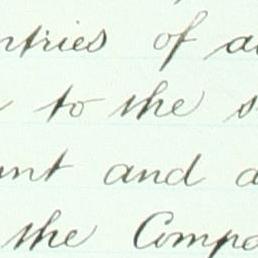 ntries of a
to the s
unt and a
the Compa